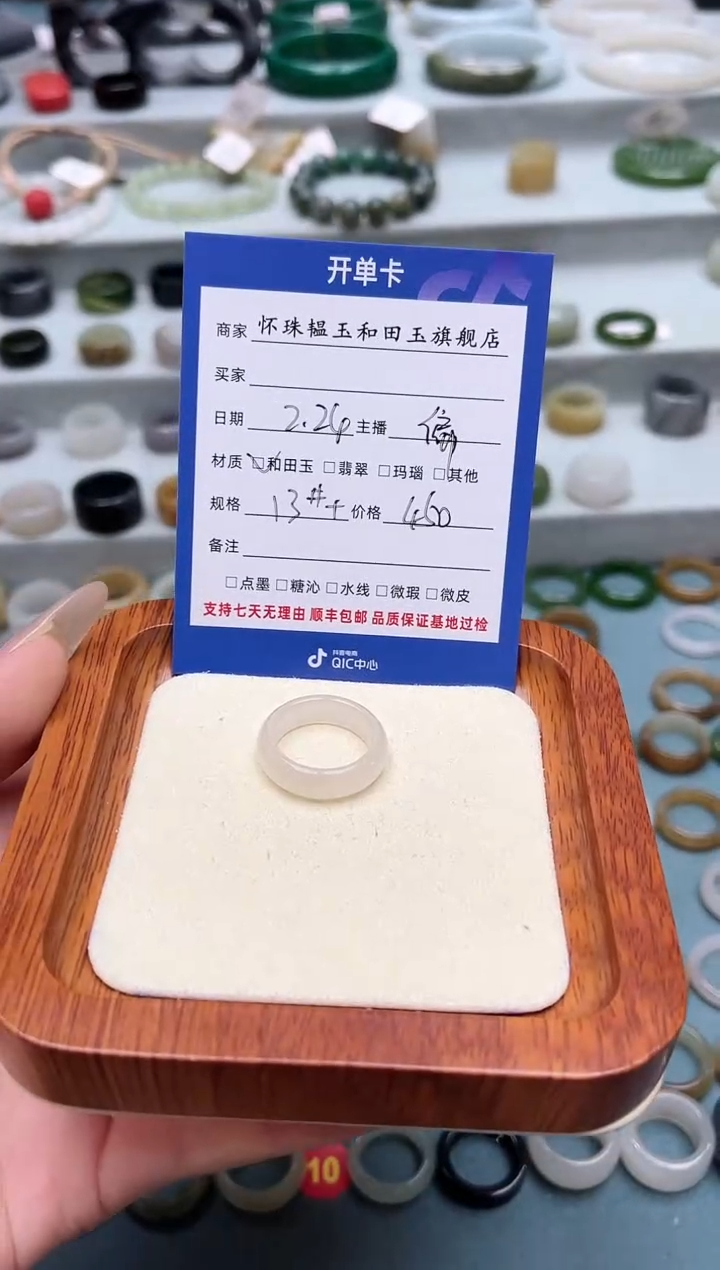 开单卡
商家 怀珠韫玉和田玉旗舰店
买家
日期 2.24 主播
材质 □和田玉 □翡翠 □玛瑙 □其他
规格 13#+ 价格 460
备注
□点墨 □糖沁 □水线 □微瑕 □微皮
支持七天无理由 顺丰包邮 品质保证基地过检
抖音电商
QIC中心
10